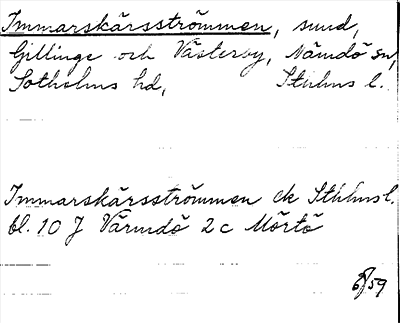 Immarskärsströmmen, sund,
Gillinge och Västerby, Nämdö sn,
Sotholms hd, Sthlms l.
Immarskärsströmmen ek Sthlms l.
bl. 10 J Värmdö 2 c Mörtö
59